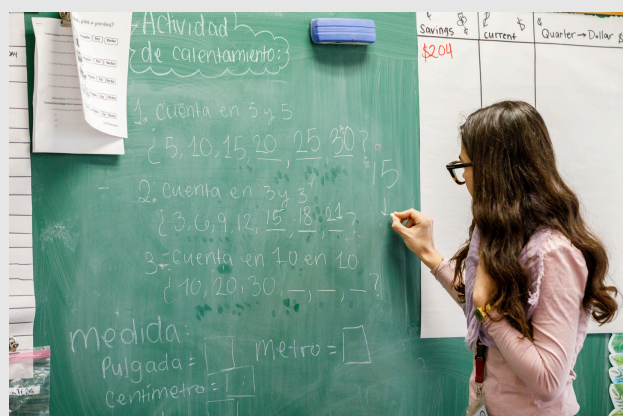 Actividad
de calentamiento:
1. cuenta en 5 y 5
¿5, 10, 15, 20, 25 30?
15
2. cuenta en 3 y 3
¿3, 6, 9, 12, 15, 18, 21?
3. cuenta en 10 en 10
¿10, 20, 30, _, _, _?
medida:
Pulgada =
metro =
centímetro =
Savings
current
Quarter → Dollar
$204